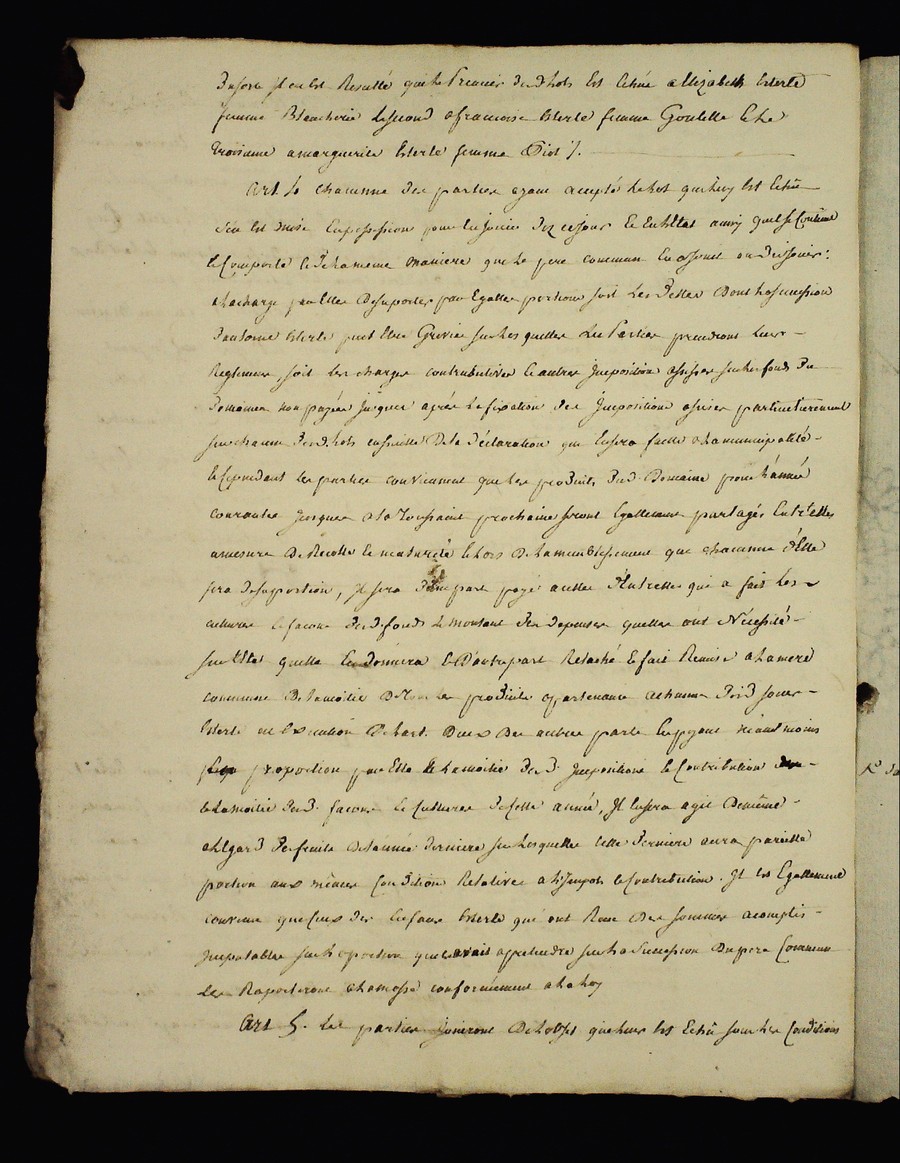 il en est Resulté que le Premier desd. lots est Echue a Elizabeth Esterle
femme Blancherie Lesecond a francoise Esterle femme Goulette Et Le
Troisieme a marguerite Esterle femme
Art. 4e chacunne des parties ayant accepté Le lot qui Luy Est Echû
S'en Est mise En possession pour En jouir dez cejour En Etat ainsy quil se Contient
Et Comporte Et De La meme maniere que Le pere commun En a jouit ou Du jouir:
A La charge par Elles De suporter par Egalles portions soit Les Dettes Dont La succession
Dantoine Esterle peut Etre Grevée sur Les quelles Les Parties prendront Leur
Reglement, soit Les charges contributives Et autres Impositions assises sur Les fonds Du
Domaine non payées jusques après La fixation des Impositions assises particulierement
sur chacun desd. Lots ensuitte De la Declaration qui En sera faitte a La municipalité
Et Cependant Les parties conviennent que Les produits Dud. Domaine pour L'année
courante jusques a la Toussaint prochaine seront Egallement partagés Entr'elles
a mesure De Recolte Et maturité Et Lors De Lameublissement que chacunne d'Elle
fera De sa portion, Il sera D'une part payé a celle d'Entrelles qui a fait Les
cultures Et facons desd. fonds Le montant Des Depenses quelles ont Nécessité
sur L'Etat quelle En donnera Et D'autre part Relaché Et fait Remise a La mere
commune De La moitie De tous Les produits appartenants a chacune Desd. soeurs
Esterle en Execution De Lart. Deux Des autres parts En payant neantmoins
proportion par Elle De La moitie desd. Impositions Et Contribution
Et La moitié desd. facons Et Cultures De cette année, Il En sera agit De même
a L'Egard De feuille De L'année derniere sur Lesquelles cette derniere aura pareille
portion aux mêmes Condition Relative a L'Impots Et Contribution. Il Est Egallement
convenu que Ceux des Enfans Esterle qui ont Recu Des sommes acomptes
Imputables sur La portion quils avait a pretendre sur La Succession Du pere Commun
Les Raporteront a La masse conformément a La Loy
Art 5. Les parties jouiront De L'objet qui Leur Est Echû sous Les Conditions